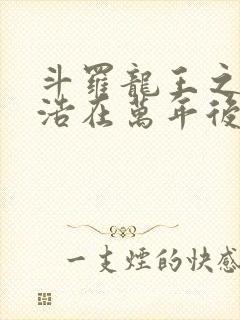 斗羅龍王之
浩在萬年後
一支煙的快感